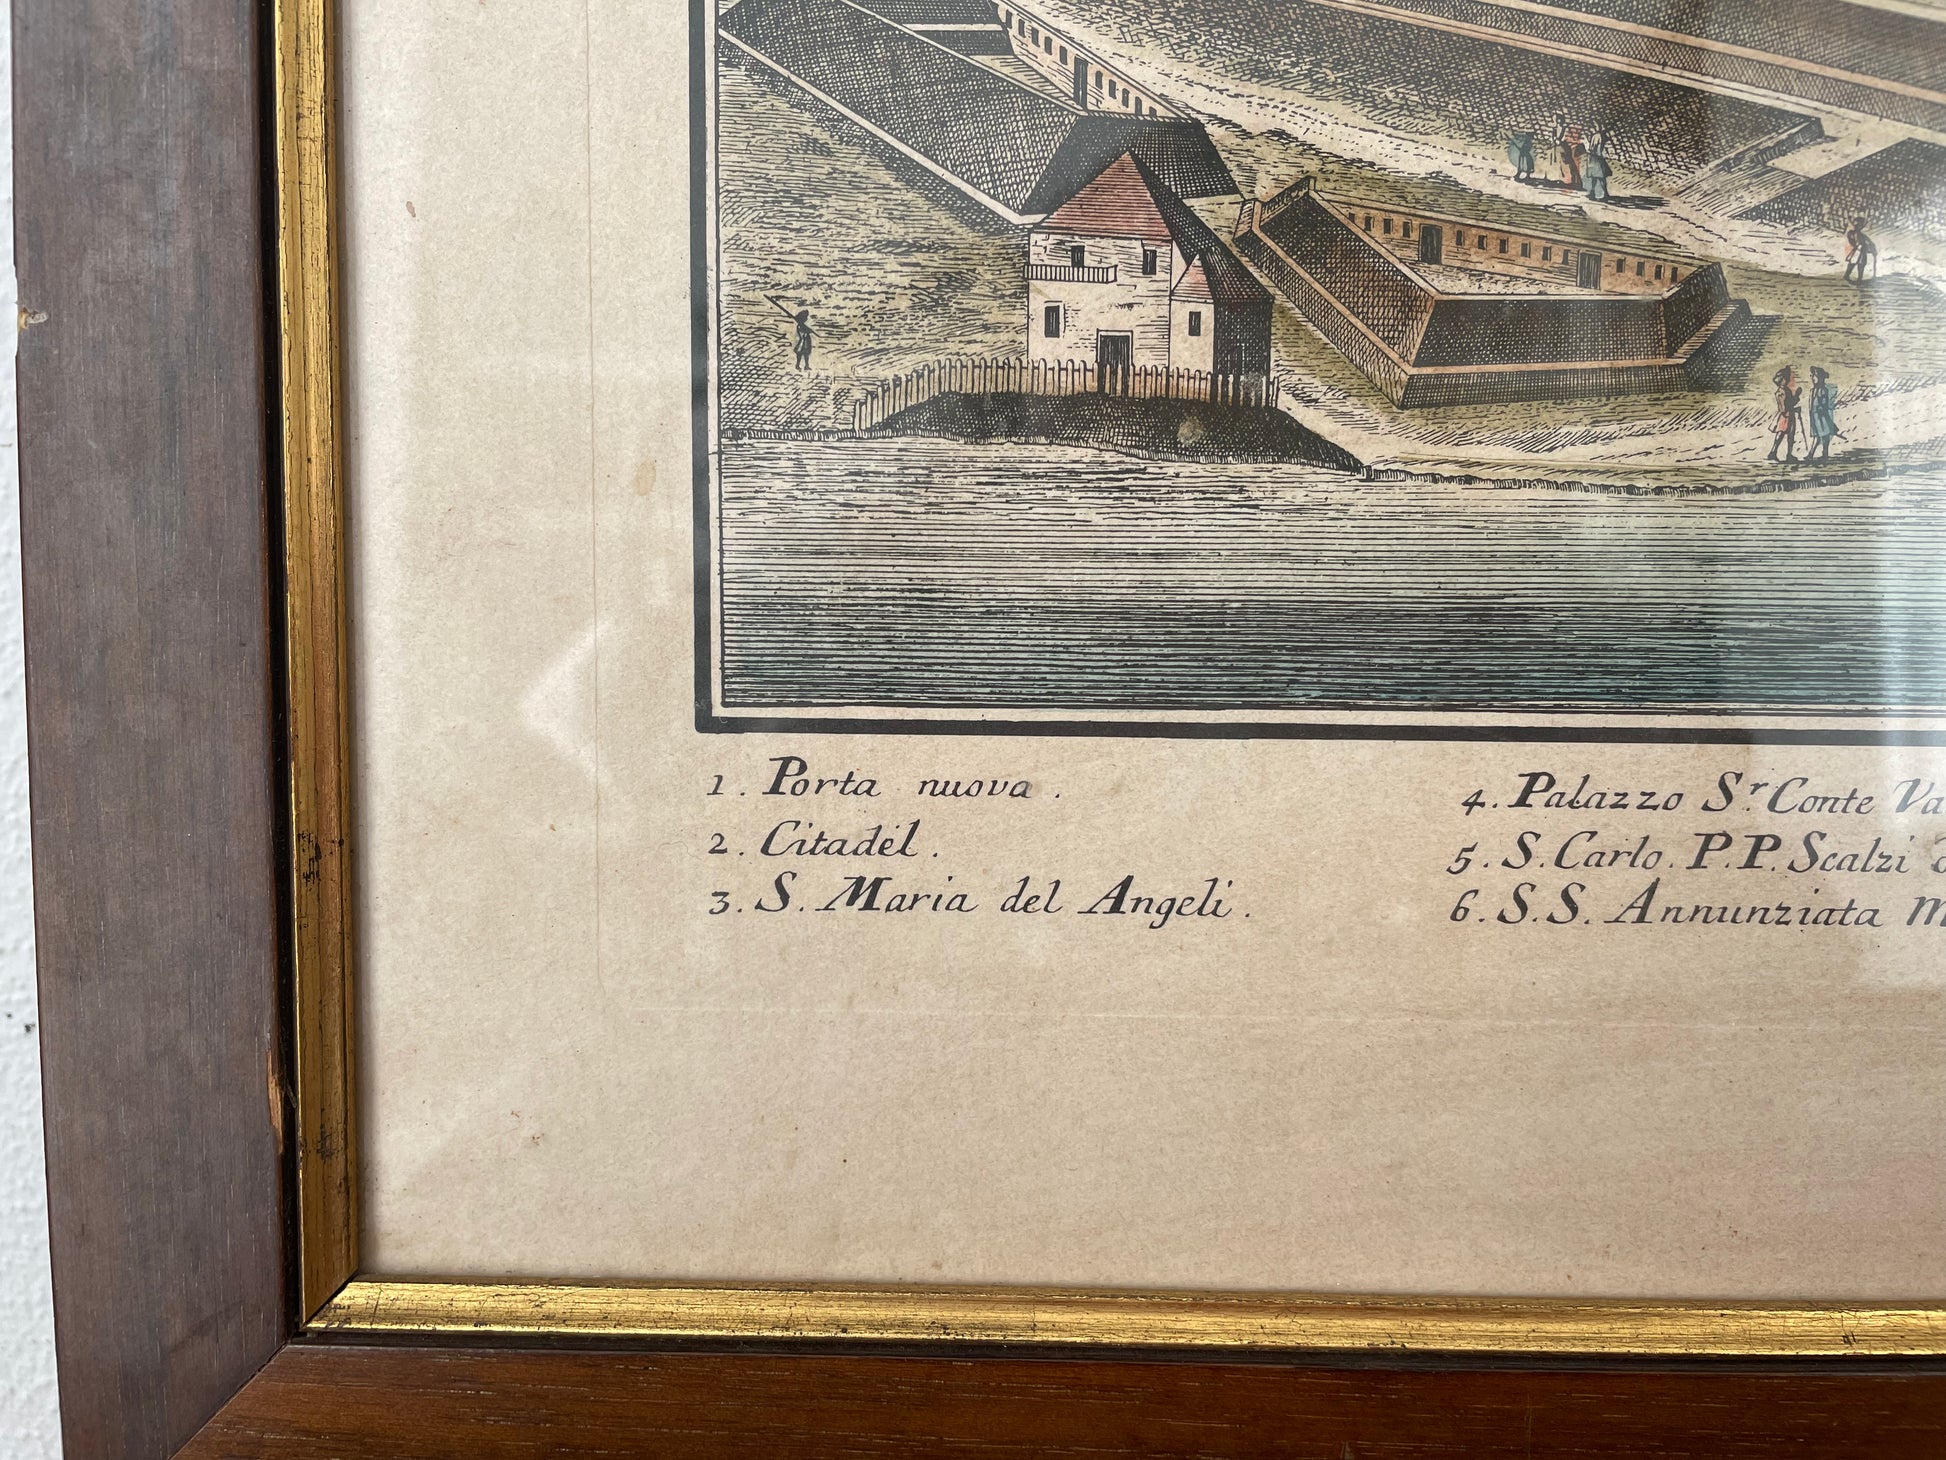 1. Porta nuova.
2. Citadel.
3. S. Maria del Angeli.
4. Palazzo Sr. Conte
5. S. Carlo. P.P. Scalzi
6. S.S. Annunziata